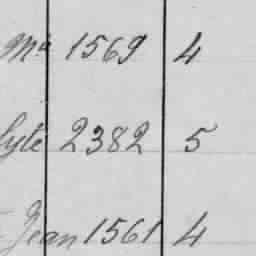 Ma 1569 4
lyte 2382 5
Jean 1561 4